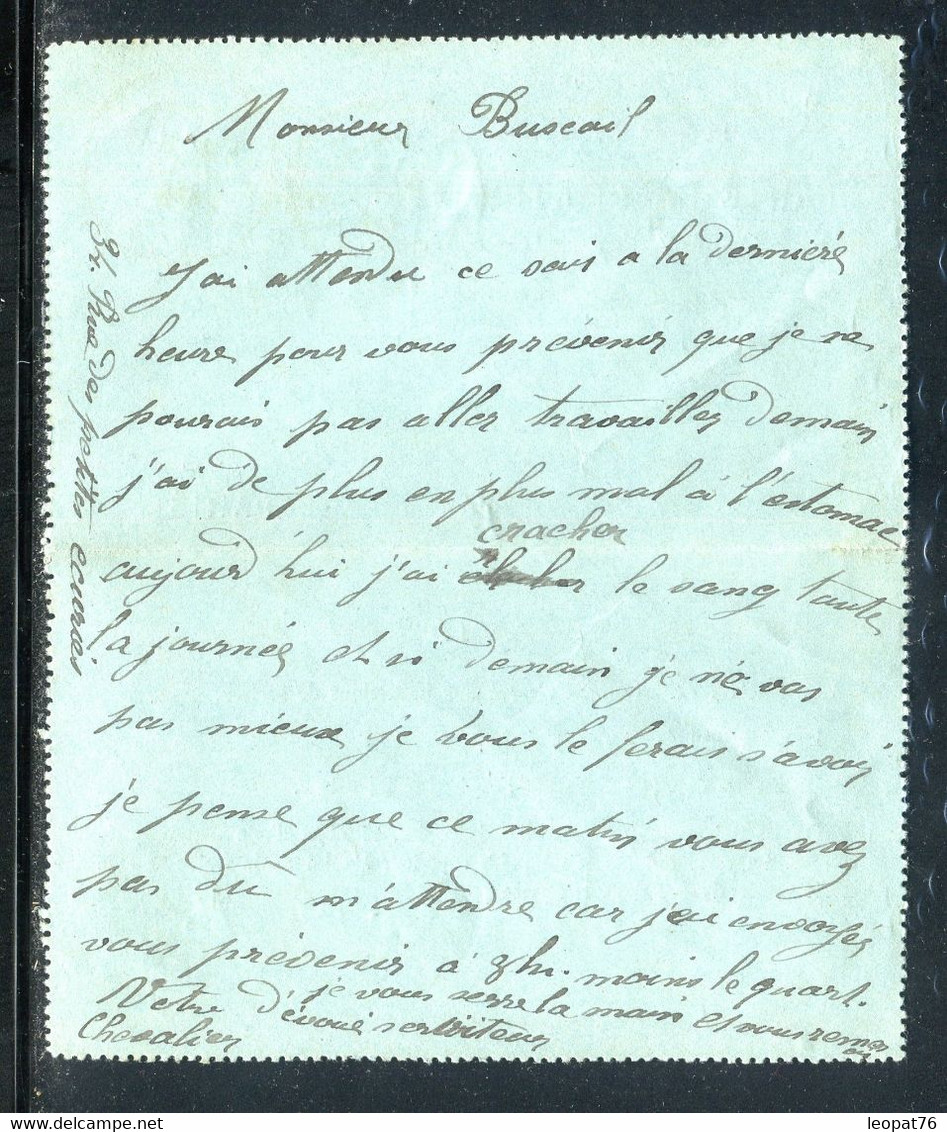 Monsieur Buscail
J'ai attendu ce soir a la dernière
heure pour vous prévenir que je ne
pourais pas aller travailler demain
j'ai de plus en plus mal à l'estomac
cracher
aujourd'hui j'ai le sang toute
la journée et si demain je né vas
pas mieux je vous le ferais s'avoir
je pense que ce matin vous avez
pas dû m'attendre car j'ai envoyés
vous prévenir à 7h. moins le quart.
je vous serre la main et vous remer
Votre dévoué serviteur
Chevalier
Rue des petites écuries
leopat76